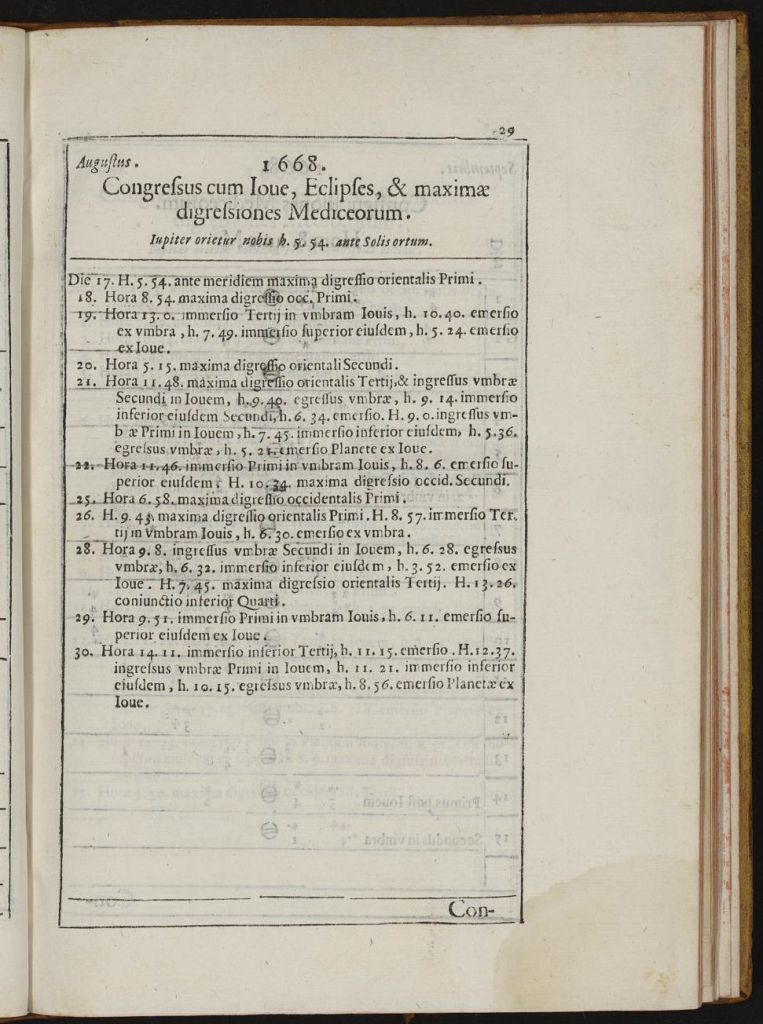 29
Auguſtus.
1668.
Congreſsus cum Ioue, Eclipſes, & maximæ
digreſsiones Mediceorum.
Iupiter orietur nobis h. 5. 54. ante Solis ortum.
Die 17. H. 5. 54. ante meridiem maxima digreſſio orientalis Primi.
18. Hora 8. 54. maxima digreſſio occ. Primi.
19. Hora 13. 0. immerſio Tertij in vmbram Iouis, h. 10. 40. emerſio
ex vmbra, h. 7. 49. immerſio ſuperior eiuſdem, h. 5. 24. emerſio
ex Ioue.
20. Hora 5. 15. maxima digreſſio orientali Secundi.
21. Hora 11. 48. maxima digreſſio orientalis Tertij, & ingreſſus vmbræ
Secundi in Iouem, h. 9. 40. egreſſus vmbræ, h. 9. 14. immerſio
inferior eiuſdem Secundi, h. 6. 34. emerſio. H. 9. 0. ingreſſus vm-
bræ Primi in Iouem, h. 7. 45. immerſio inferior eiuſdem, h. 5. 36.
egreſsus vmbræ, h. 5. 21. emerſio Planetæ ex Ioue.
22. Hora 11. 46. immerſio Primi in vmbram Iouis, h. 8. 6. emerſio ſu-
perior eiuſdem. H. 10. 34. maxima digreſsio occid. Secundi.
25. Hora 6. 58. maxima digreſſio occidentalis Primi.
26. H. 9. 43. maxima digreſſio orientalis Primi. H. 8. 57. immerſio Ter.
tij in vmbram Iouis, h. 6. 30. emerſio ex vmbra.
28. Hora 9. 8. ingreſſus vmbræ Secundi in Iouem, h. 6. 28. egreſsus
vmbræ, h. 6. 32. immerſio inferior eiuſdem, h. 3. 52. emerſio ex
Ioue. H. 7. 45. maxima digreſsio orientalis Tertij. H. 13. 26.
coniunctio inferior Quarti.
29. Hora 9. 51. immerſio Primi in vmbram Iouis, h. 6. 11. emerſio ſu-
perior eiuſdem ex Ioue.
30. Hora 14. 11. immerſio inferior Tertij, h. 11. 15. emerſio. H. 12. 37.
ingreſsus vmbræ Primi in Iouem, h. 11. 21. immerſio inferior
eiuſdem, h. 10. 15. egreſsus vmbræ, h. 8. 56. emerſio Planetæ ex
Ioue.
Con-